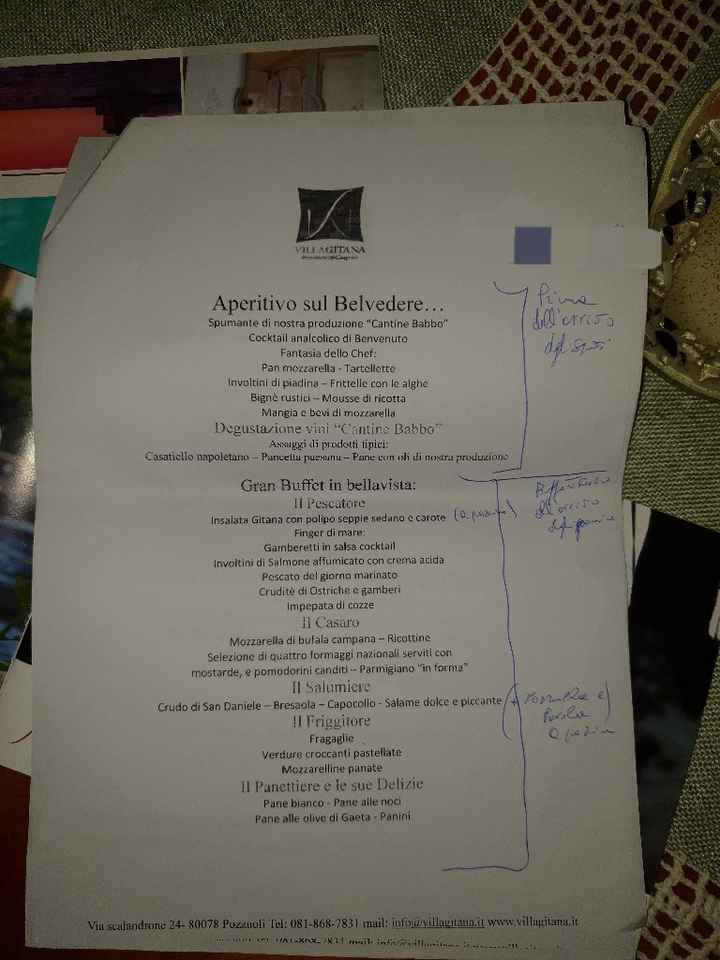 VILLAGITANA
Aperitivo sul Belvedere…
Prima
dell'arrivo
degli sposi
Spumante di nostra produzione "Cantine Babbo"
Cocktail analcolico di Benvenuto
Fantasia dello Chef:
Pan mozzarella - Tartellette
Involtini di piadina – Frittelle con le alghe
Bignè rustici – Mousse di ricotta
Mangia e bevi di mozzarella
Degustazione vini "Cantine Babbo"
Assaggi di prodotti tipici:
Casatiello napoletano – Pancetta paesana – Pane con oli di nostra produzione
Gran Buffet in bellavista:
Il Pescatore
Insalata Gitana con polipo seppie sedano e carote
Finger di mare:
Gamberetti in salsa cocktail
Involtini di Salmone affumicato con crema acida
Pescato del giorno marinato
Cruditè di Ostriche e gamberi
Impepata di cozze
Il Casaro
Mozzarella di bufala campana – Ricottine
Selezione di quattro formaggi nazionali serviti con
mostarde, e pomodorini canditi – Parmigiano "in forma"
Il Salumiere
Crudo di San Daniele – Bresaola – Capocollo - Salame dolce e piccante
Il Friggitore
Fragaglie
Verdure croccanti pastellate
Mozzarelline panate
Il Panettiere e le sue Delizie
Pane bianco - Pane alle noci
Pane alle olive di Gaeta - Panini
Via scalandrone 24- 80078 Pozzuoli Tel: 081-868-7831 mail: info@villagitana.it www.villagitana.it